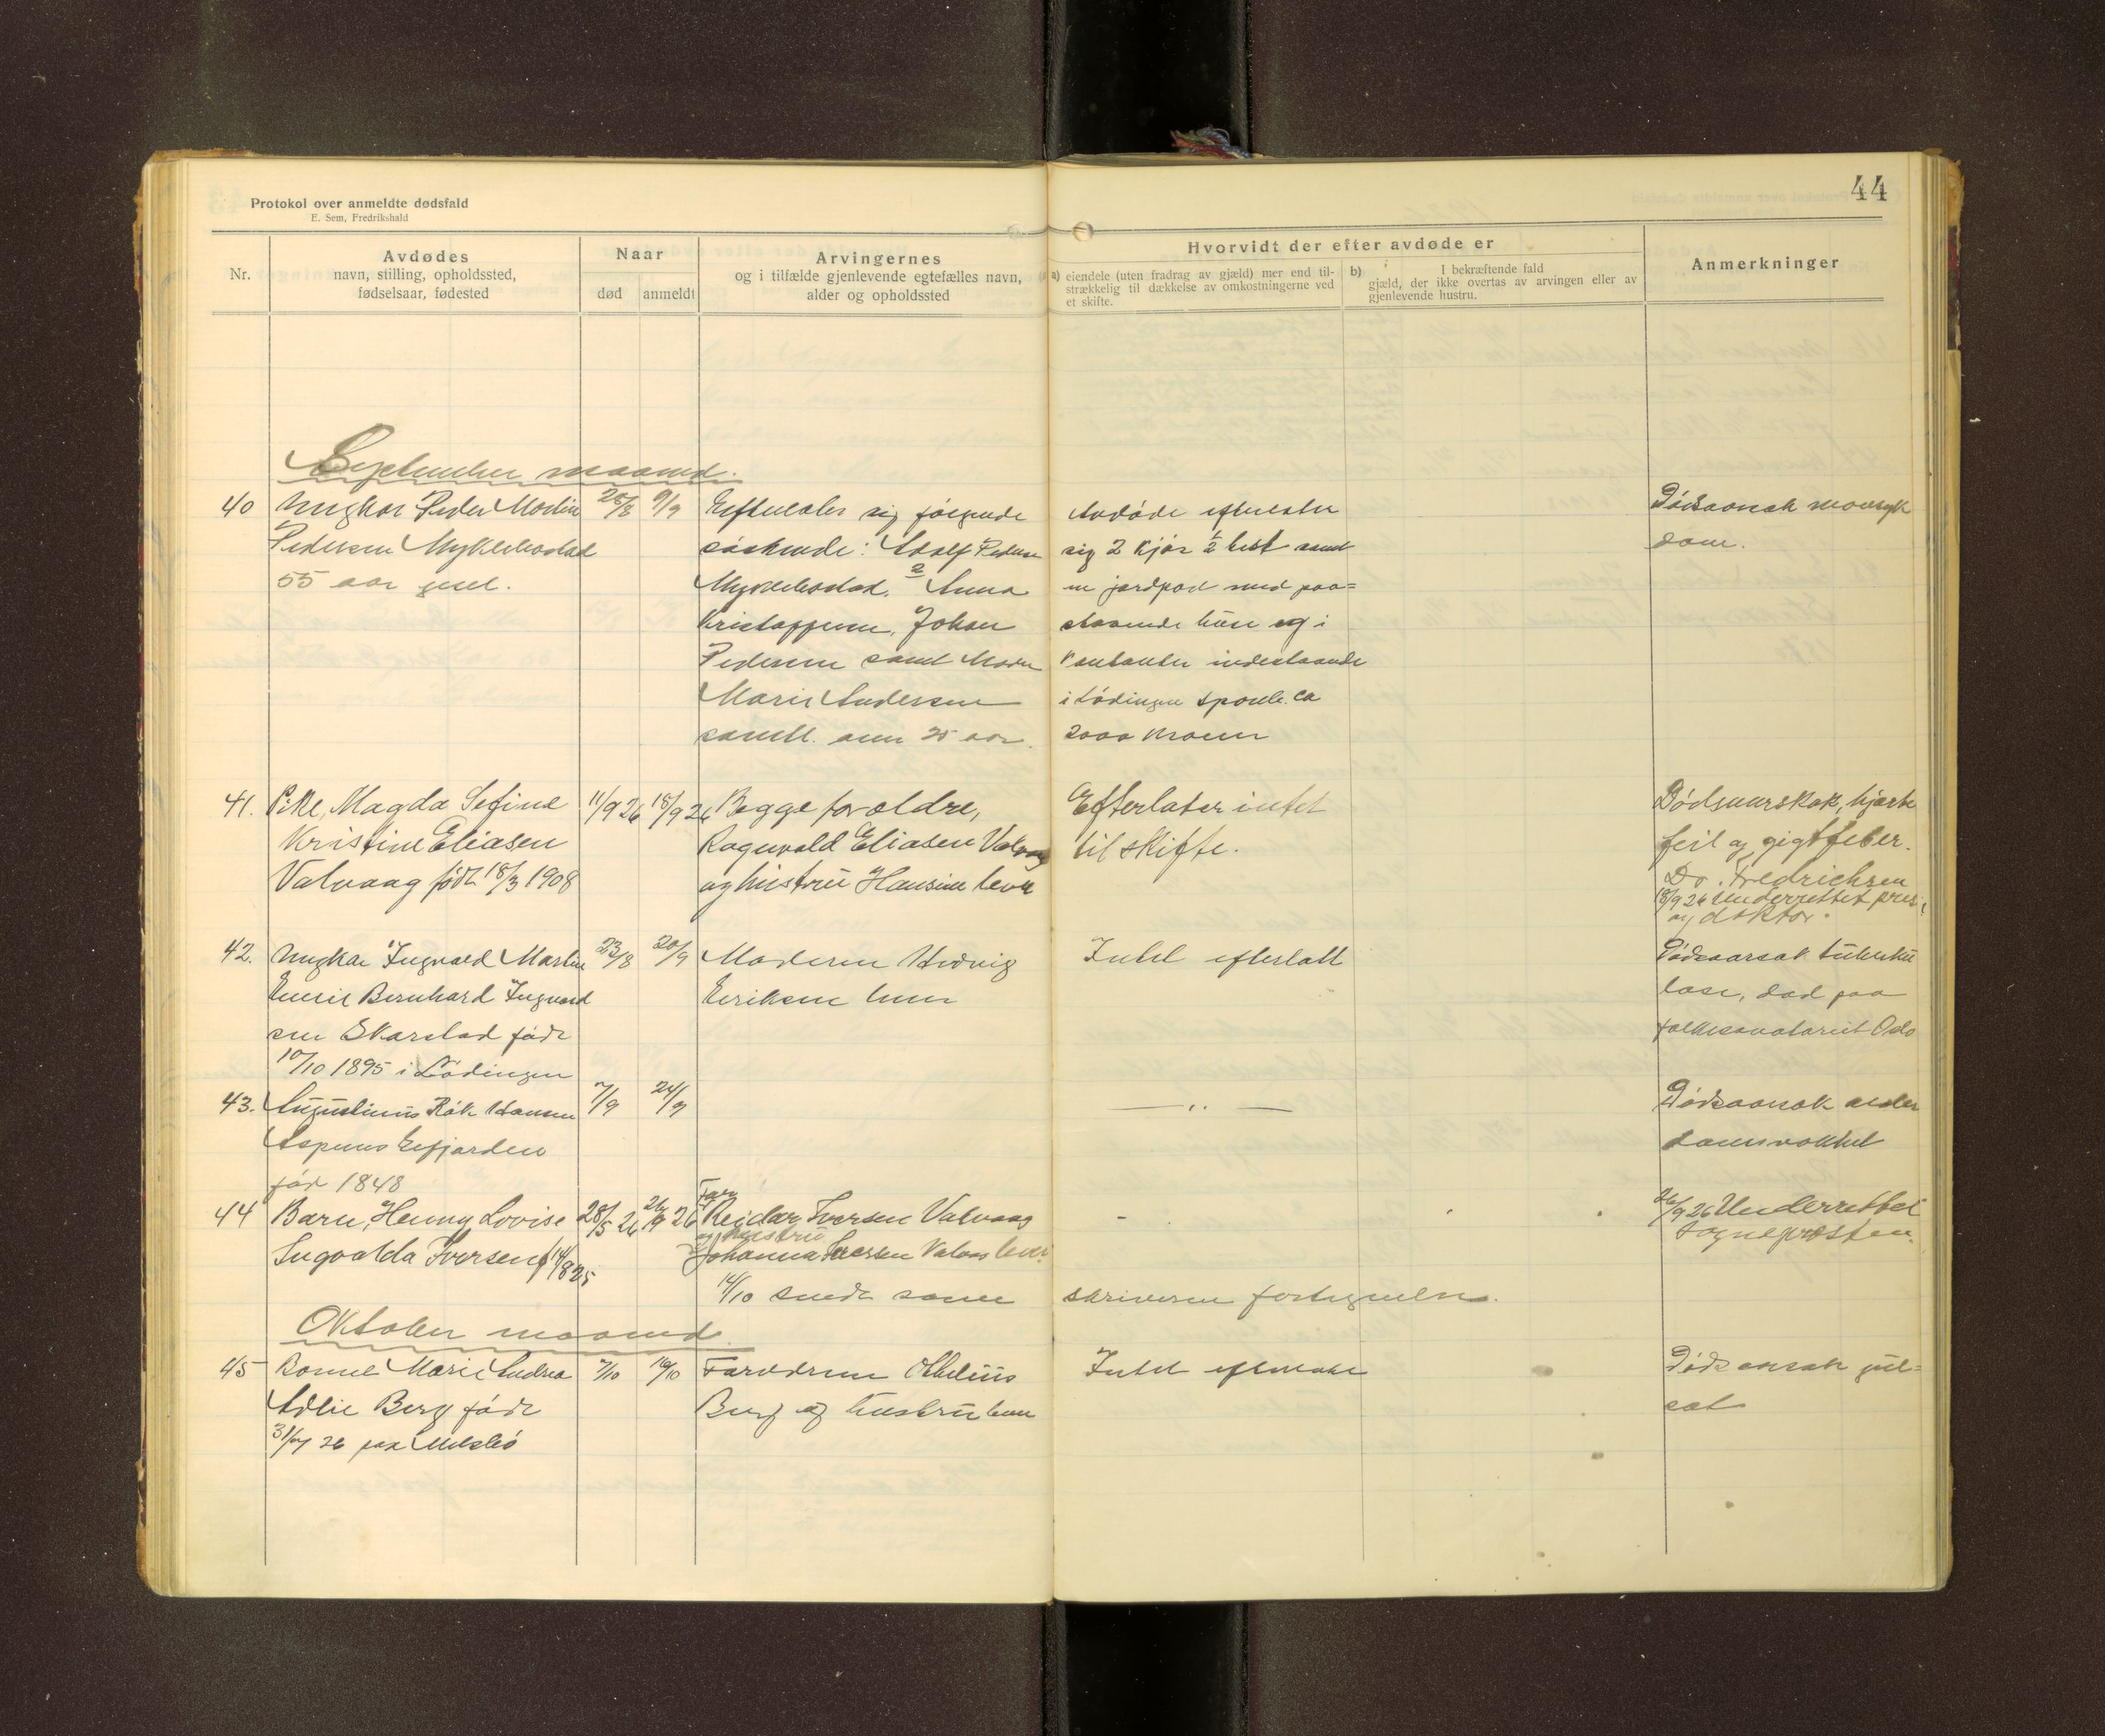 44
Protokol over anmeldte dødsfald
E. Sem, Fredrikshald
Nr.
Avdødes
navn, stilling, opholdssted,
fødselsaar, fødested
Naar
død
anmeldt
Arvingernes
og i tilfælde gjenlevende egtefælles navn,
alder og opholdssted
Hvorvidt der efter avdøde er
a) eiendele (uten fradrag av gjæld) mer end til-
strækkelig til dækkelse av omkostningerne ved
et skifte.
b) I bekræftende fald
gjæld, der ikke overtas av arvingen eller av
gjenlevende hustru.
Anmerkninger
September maaned.
40
Ungkar Peder Martin
Pedersen Myklebostad
55 aar gml.
28/8
9/9
Efterlater sig følgende
søskende: Adolf Pedersen
Myklebostad. Anna
Kristoffersen, Johan
Pedersen samt
Marie Andersen
samtl. over 25 aar.
Avdøde efterlater
sig 2 kjør 1/2 hest samt
en jordpart med paa=
staaende huse og i
kontanter indestaaende
i Lødingen Spareb. ca
2000 kroner
Dødsaarsak mavesyk
dom.
41.
Pike, Magda Sefine
Kristine Eliasen
Valvaag født 18/3 1908
11/9 26
18/9 26
Begge forældre,
Ragnvald Eliasen Valvaag
og hustru Hansine lever
Efterlater intet
til skifte.
Dødsuurskak, hjærte
feil og gigtfeber.
Dr. Fredrichsen
18/9 26 Underrettet pres
og doktor.
42.
Ungkar Ingvald Martin
Emil Bernhard Ingvard
sen Skarstad född
10/10 1895 i Lødingen
23/8
20/9
Moderen Hedvig
Eeriksen lever
Intet efterlatt
Dødsaarsak tuberku
lose, død paa
folkesanatoriet Oslo
43.
Augustinus Røk Hansen
Aspenes Eefjorden
fød 1848
7/9
24/9
— ,, —
Dødsaarsak alder
domsvakhet
44
Barn, Henny Lovise
Ingvalda Iversen f 14/8 25
28/5 26
26/9 26
Far
Reidar Iversen Valvaag
og hustru
Johanna Iversen Valvaag lever.
-
26/9 26 Underrettet
Sogneprosten.
14/10 sendt soren
skriveren fortegnelse.
Oktober maaned
45
Barnet Marie Andrea
Adlie Berg född
31/7 26 paa
7/10
16/10
Forældrene Othelius
Berg og hustru lever
Intet efterlatt
Dødsaarsak gul=
sot